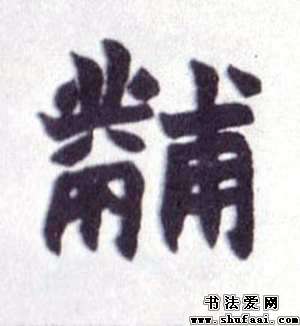 黼
书法爱网
www.shufaai.com